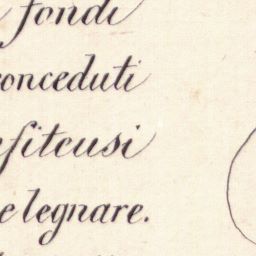 fondi
conceduti
fiteusi
e legnare.